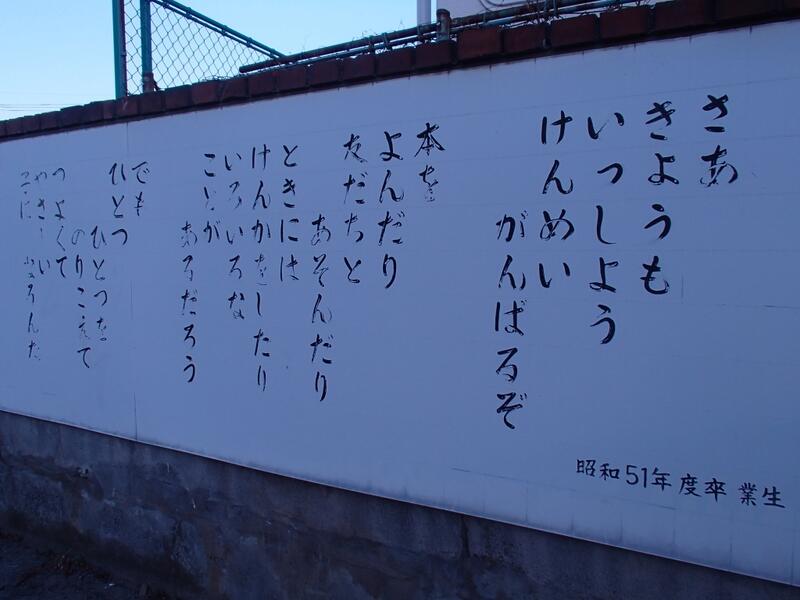 さあ
きょうも
いっしょう
けんめい
がんばるぞ
本を
よんだり
友だちと
あそんだり
ときには
けんかをしたり
いろいろな
ことが
あるだろう
でも
ひとつ
ひとつを
のりこえて
つよくて
やさしい
こに なるんだ
昭和51年度卒業生